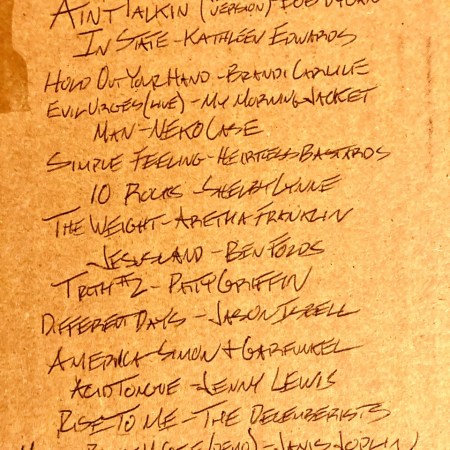 AIN'T TALKIN (
VERSION) - BOB DYLAN
IN STATE - KATHLEEN EDWARDS
HOLD OUT YOUR HAND - BRANDI CARLILE
EVIL URGES (LIVE) - MY MORNING JACKET
MAN - NEKO CASE
SIMPLE FEELING - HEARTLESS BASTARDS
10 ROCKS - SHELBY LYNNE
THE WEIGHT - ARETHA FRANKLIN
JESUSLAND - BEN FOLDS
TRUTH #2 - PATTY GRIFFIN
DIFFERENT DAYS - JASON ISBELL
AMERICA - SIMON + GARFUNKEL
ACID TONGUE - JENNY LEWIS
RISE TO ME - THE DECEMBERISTS
(DEMO) - JANIS JOPLIN